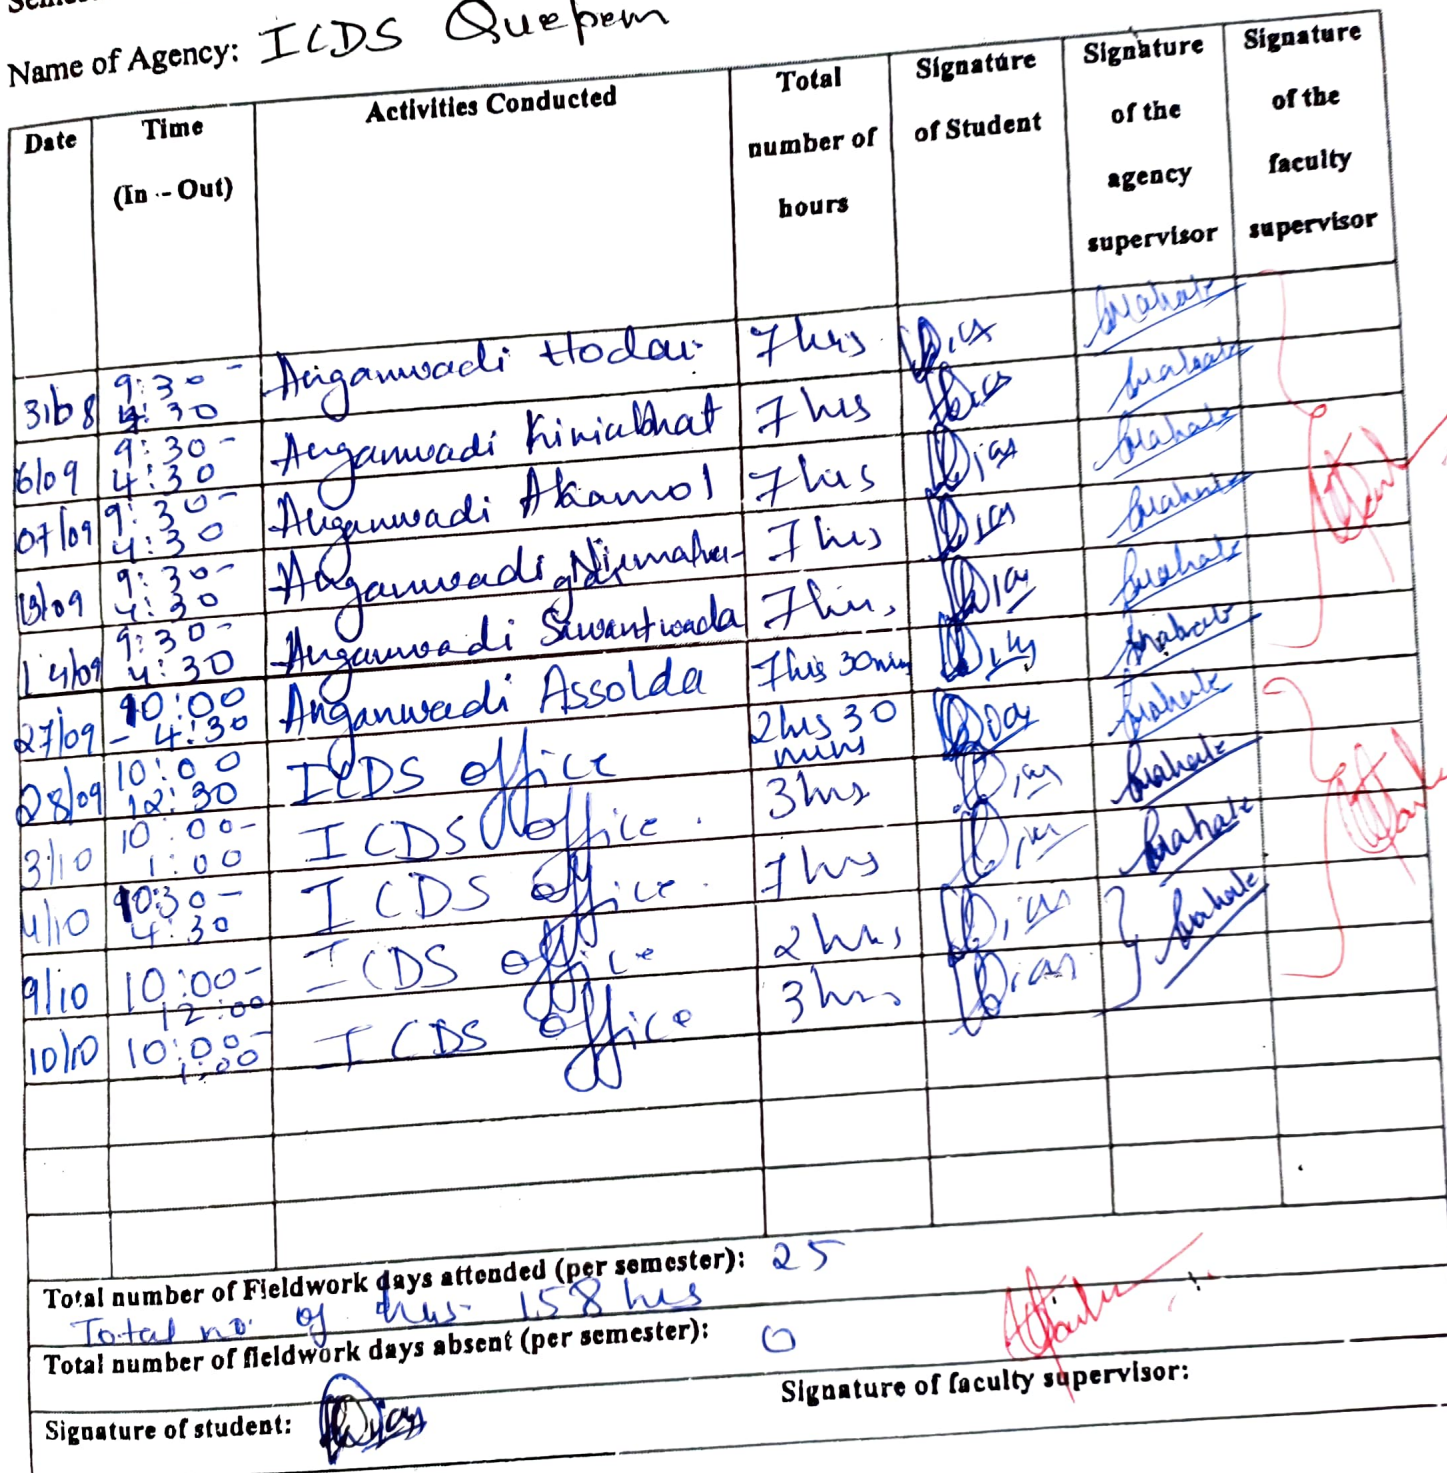 Name of Agency: ICDS Quepem
Date
Time
(In - Out)
Activities Conducted
Total
number of
hours
Signature
of Student
Signature
of the
agency
supervisor
Signature
of the
faculty
supervisor
31/08 9:30 - 4:30 Anganwadi Hodar 7 hrs Dias
6/09 9:30 - 4:30 Anganwadi Kiniabhat 7 hrs Dias
07/09 9:30 - 4:30 Anganwadi Akamol 7 hrs Dias
13/09 9:30 - 4:30 Anganwadi 7 hrs Dias
14/09 9:30 - 4:30 Anganwadi Sawantwada 7 hrs, Dias
27/09 10:00 - 4:30 Anganwadi Assolda 7 hrs 30 min Dias
28/09 10:00 12:30 ICDS office 2 hrs 30 mins Dias
3/10 10:00 - 1:00 ICDS office. 3 hrs Dias
4/10 10:30 - 4:30 ICDS office. 7 hrs Dias
9/10 10:00 - 12:00 ICDS office 2 hrs Dias
10/10 10:00 - 1:00 ICDS office 3 hrs Dias
Total number of Fieldwork days attended (per semester): 25
Total no. of hrs- 158 hrs
Total number of fieldwork days absent (per semester): 0
Signature of student: Dias
Signature of faculty supervisor: